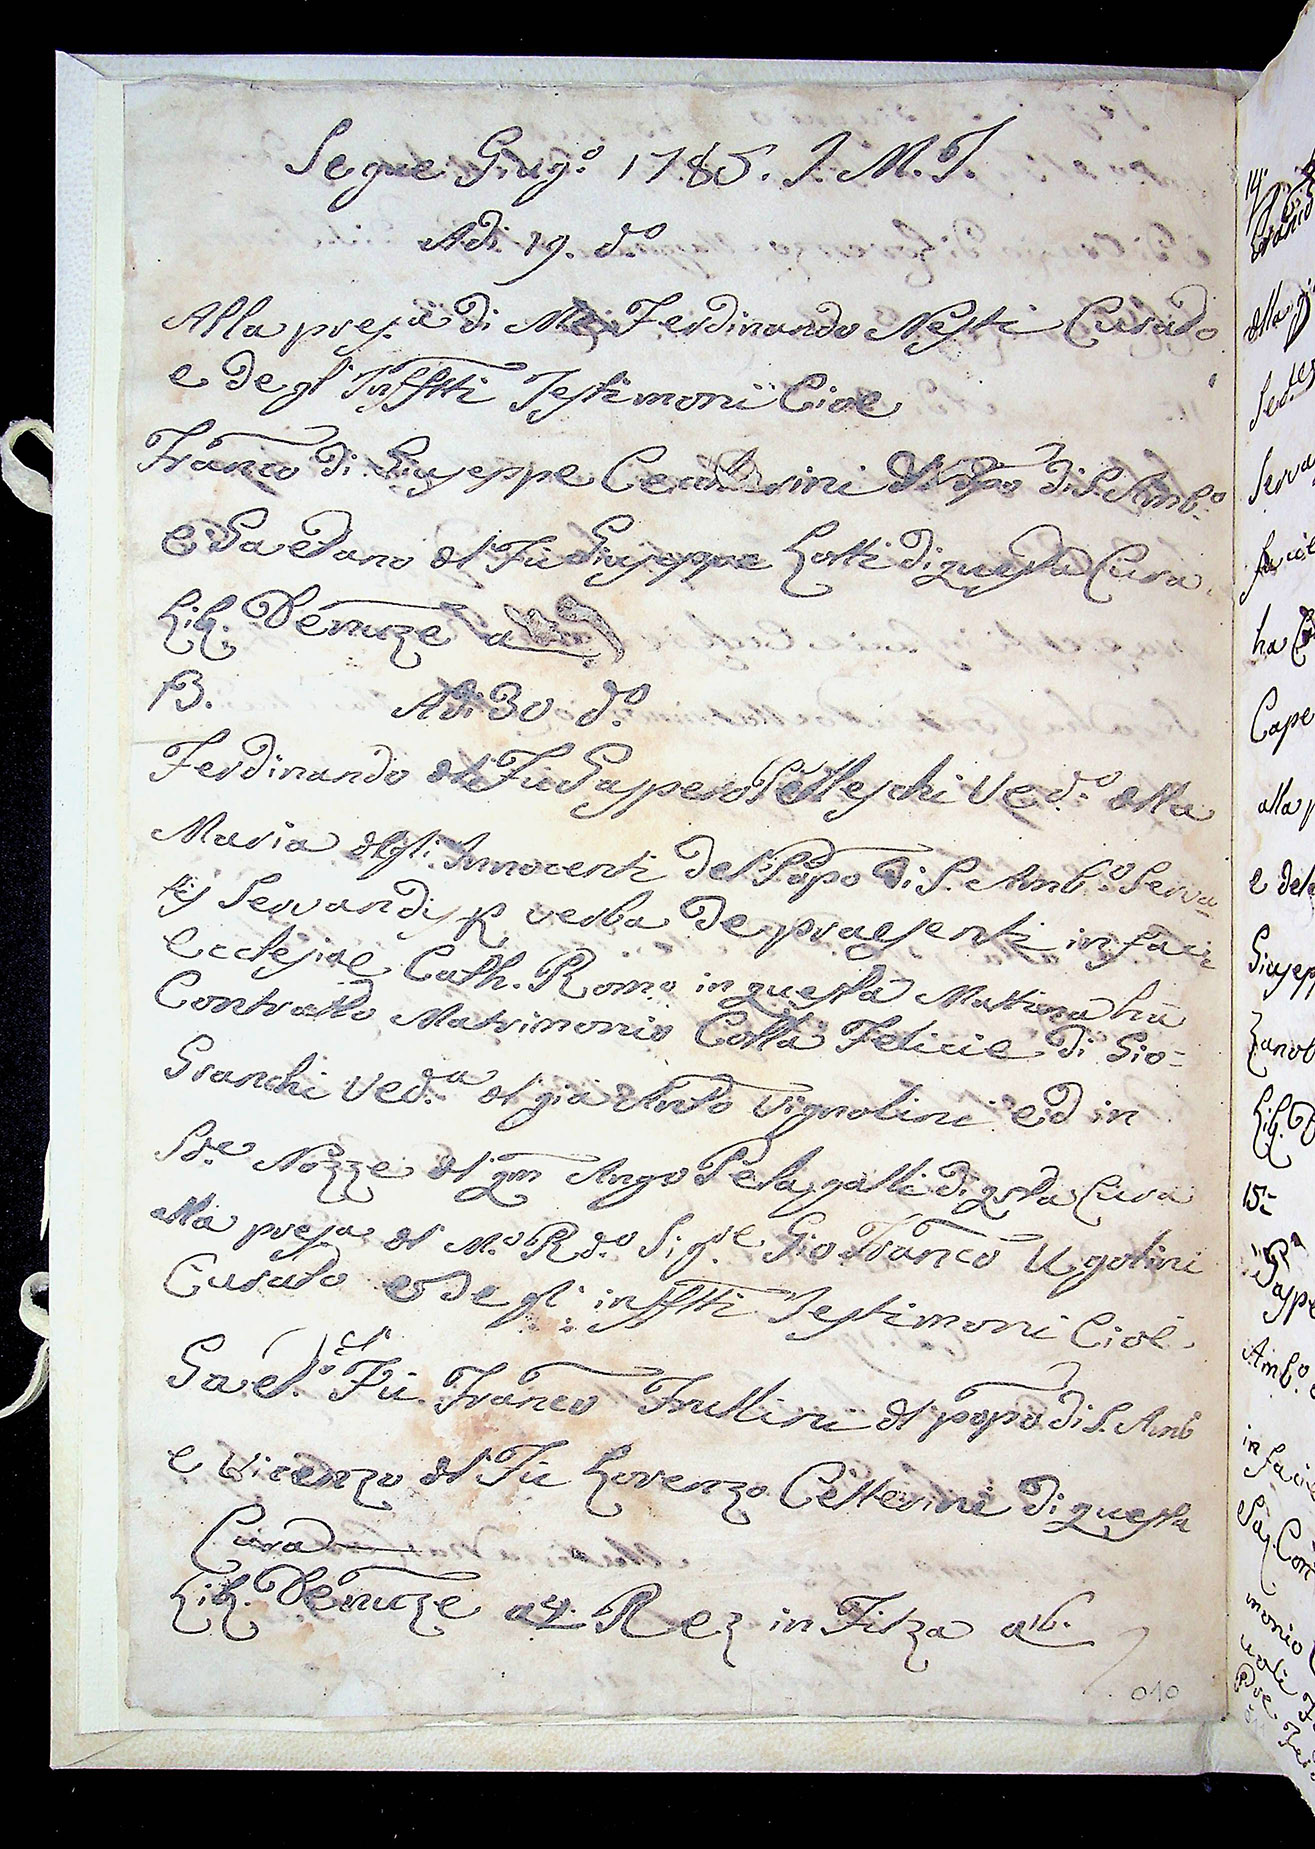 Segue Giug.º 1785. J. M. J.
Adi 29. d.º
Alla pres.a di Me Ferdinando Nesti Curado
e degl' Inffltti Testimoni Cioe
Franco di Giuseppe Cecherini del Popo di S. Amb.º
e Gaetano del Fu Giuseppe Lotti di questa Cura.
Lib. Denunze a
13. Adi 30 d.º
Ferdinando del Fu Gasspero Pelleschi Ved.º della
Maria degl'. Innocenti del Popo di S. Amb.º Serva=
tis Servandis P verba de praesenti in facie
Ecclesiae Cath. Rom.e in questa Mattina ha
Contratto Matrimonio Colla Felicie di Gio=
Granchi Ved.a del già Anto Vignolini ed in
S.de Nozze del qm Ango Pelagalli di qsta Cura
alla presa del M.º R.do Sig.re Gio Franco Ugolini
Curato e degl': inffltti Testimoni Cioè.
Gaet.º del Fu Franco Frullini del popo di S. Amb
e Vicenzo del Fu Lorenzo Cetterini di questa
Cura
Lib. Denunze a 4. R ez in Filza a 16.
010
14.
alla
Serva
facie
ha
Cape
alla p
e del
Giusep
Zanob
Lib. D
15=
Gaspe
Amb.º
in facie
Con
monio